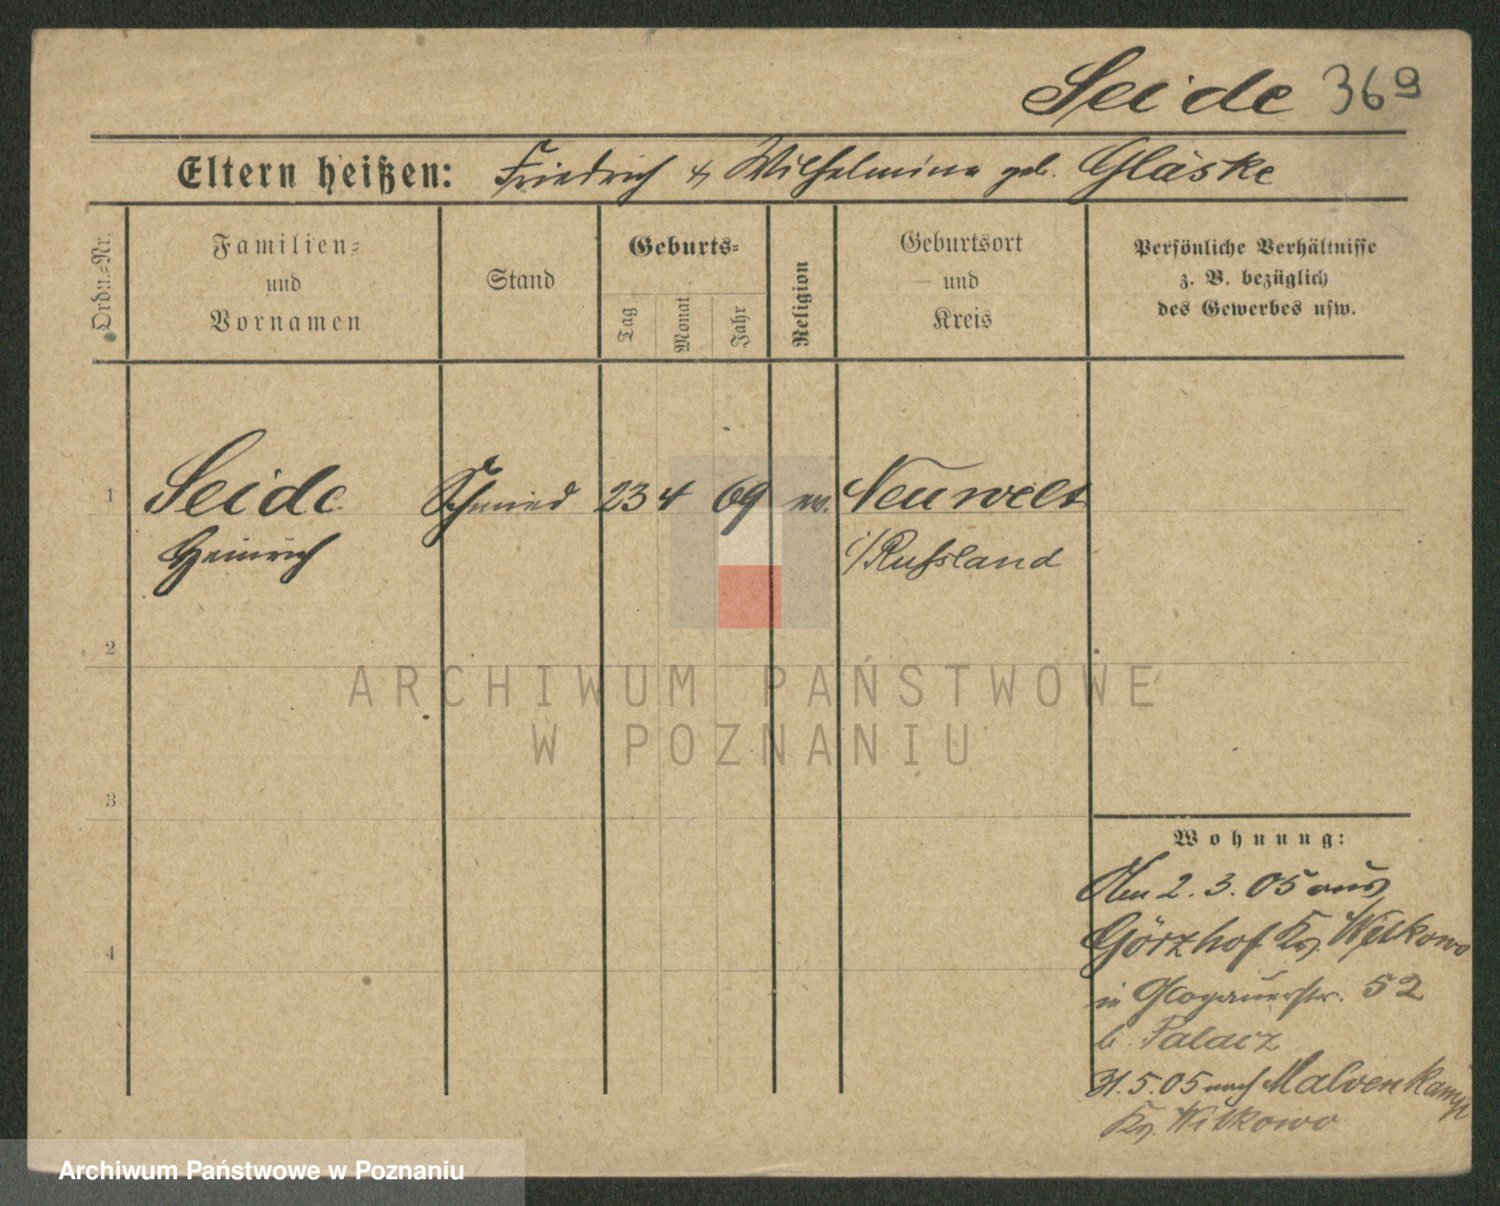 Seide 369
Eltern heißen: Friedrich & Wilhelmine geb. Gläske
Ordn.=Nr.
Familien=
und
Vornamen
Stand
Geburts=
Tag
Monat
Jahr
Religion
Geburtsort
und
Kreis
Persönliche Verhältnisse
z. B. bezüglich
des Gewerbes usw.
1 Seide Schmied 23 4 69 ev. Neuwelt
Heinrich i/Russland
2
ARCHIWUM PAŃSTWOWE
W POZNANIU
3
Wohnung:
Am 2.3.05 aus
4
Görzhof Kr. Witkowo
in Glogauerstr. 52
b. Palacz
31.5.05 nach Malvenkamp
Kr. Witkowo
Archiwum Państwowe w Poznaniu